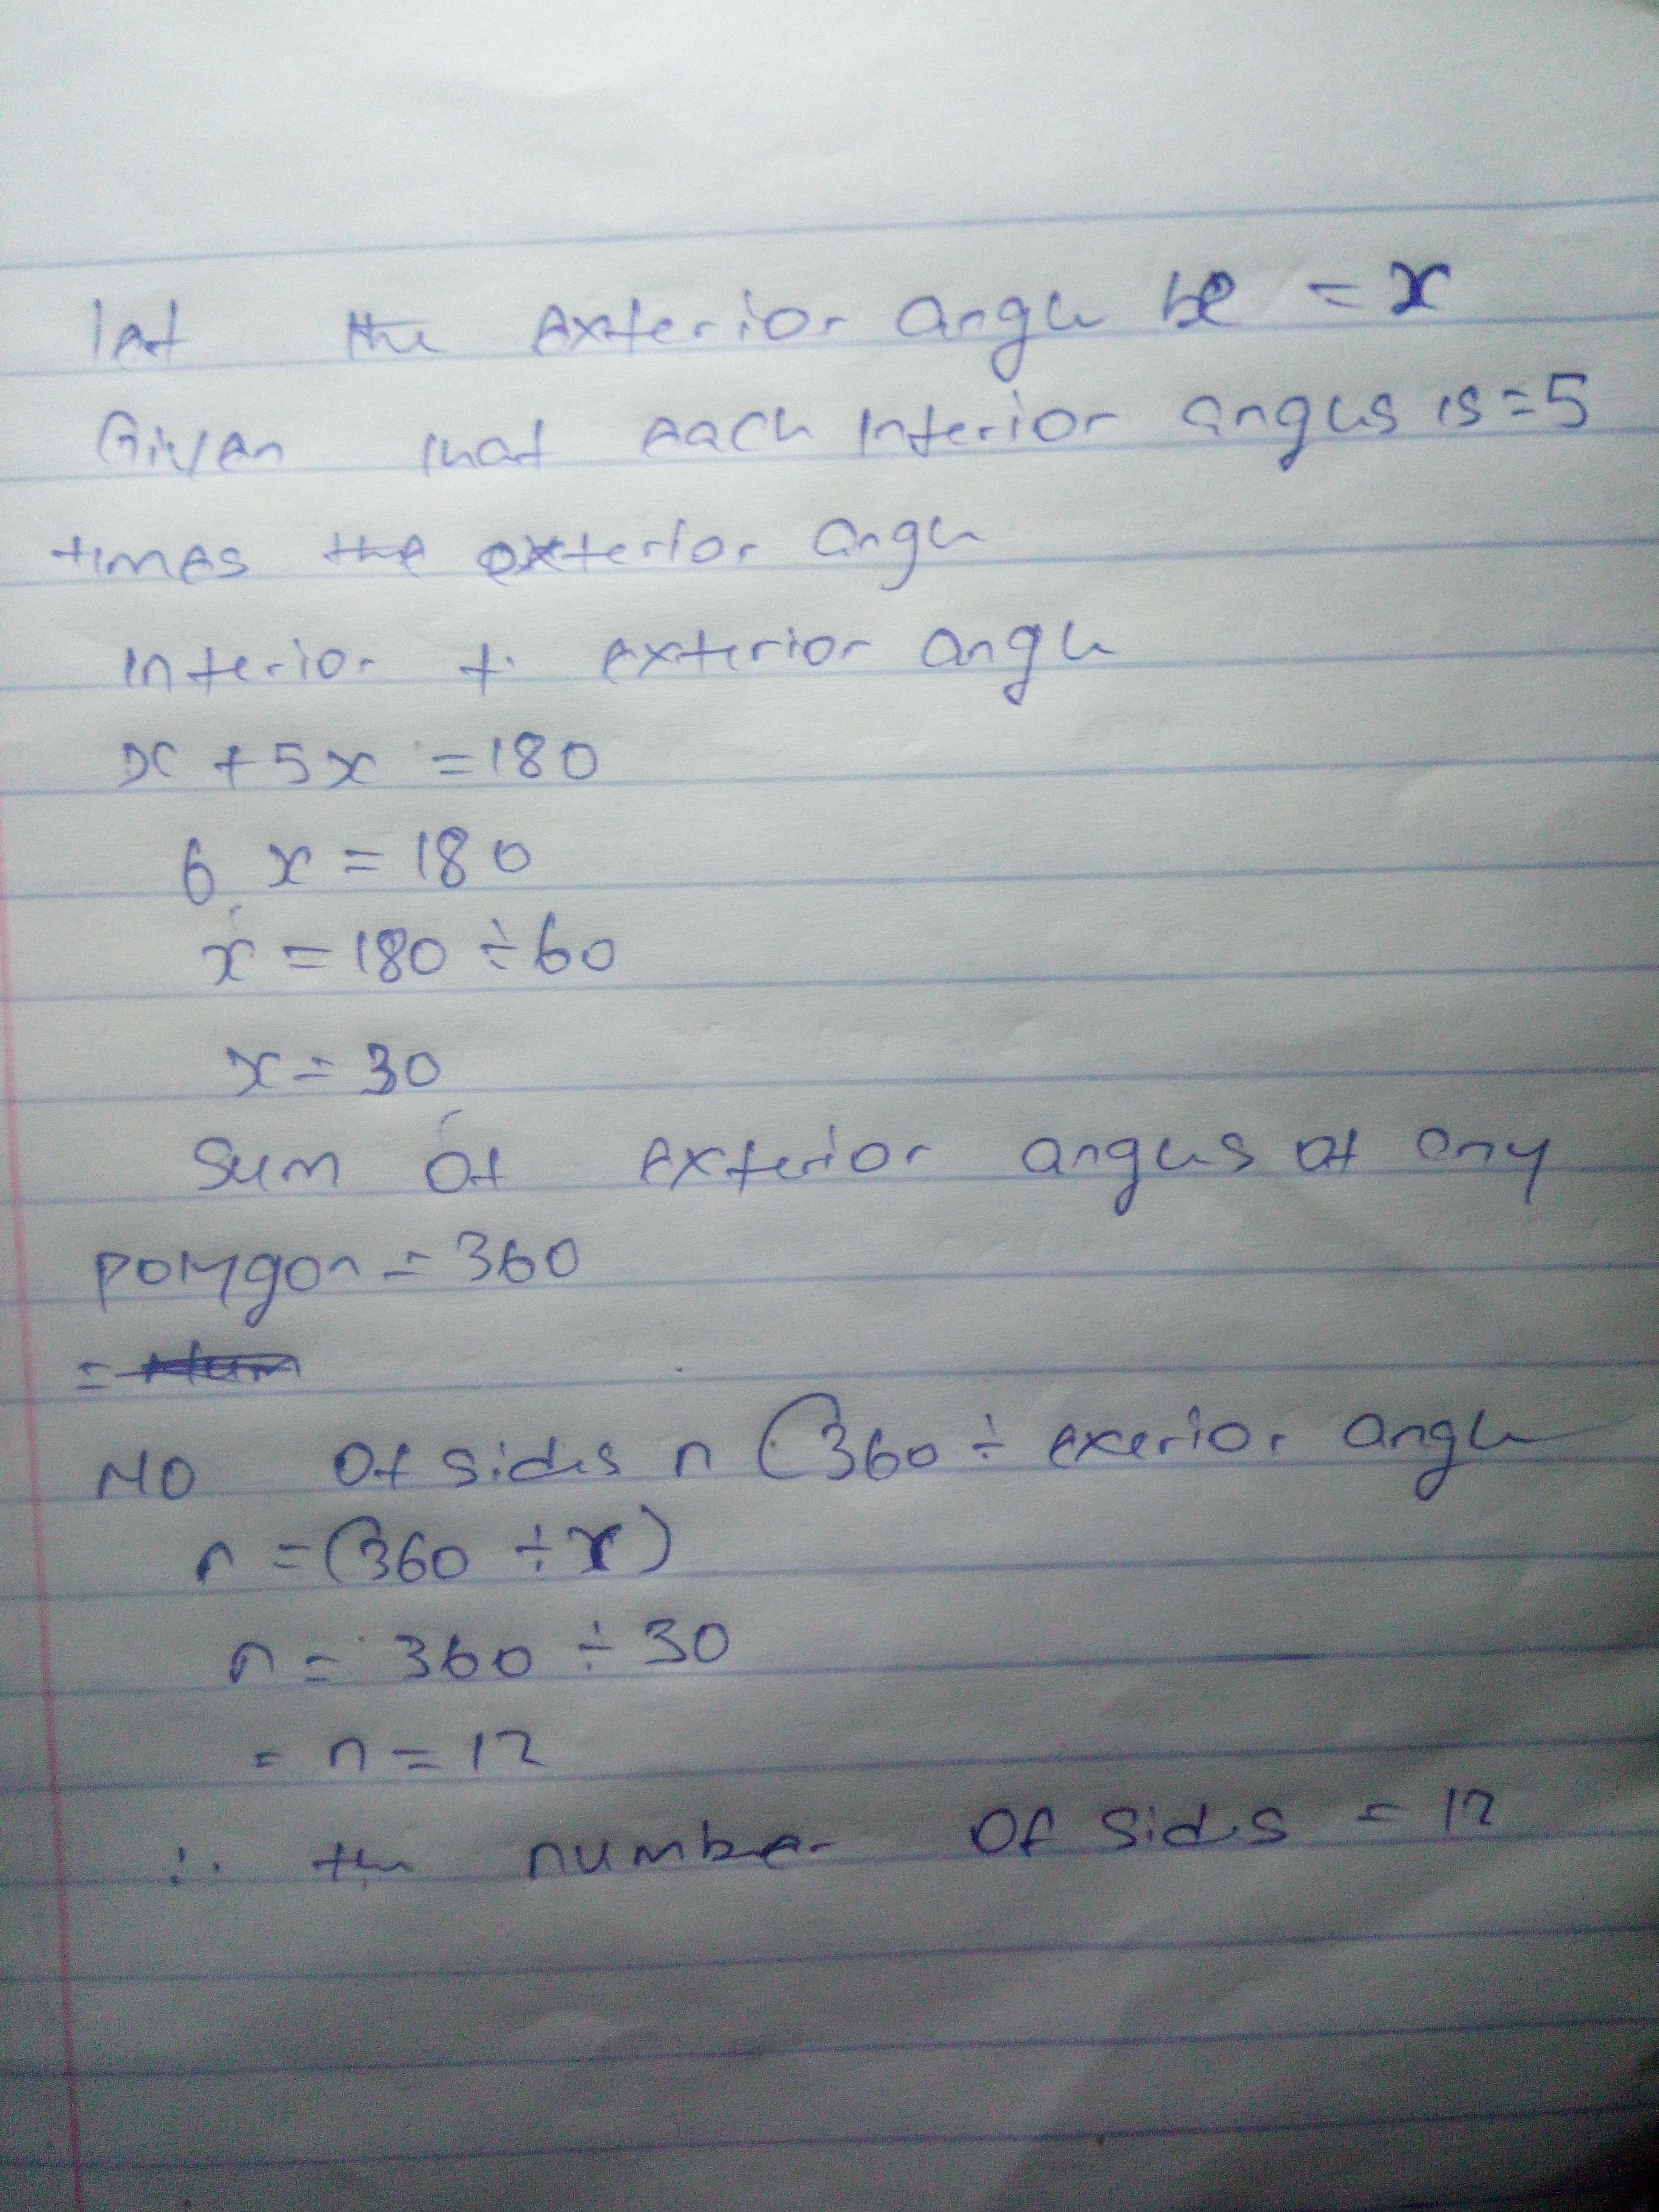 let the exterior angle be = x
Given that each interior angles is = 5
times the exterior angle
interior + exterior angle
x + 5x = 180
6 x = 180
x = 180 ÷ 60
x = 30
Sum of exterior angles of any
polygon = 360
=
NO Of sides n (360 ÷ exerior angle
n = (360 ÷ x)
n = 360 ÷ 30
= n = 12
∴ the number Of sides = 12